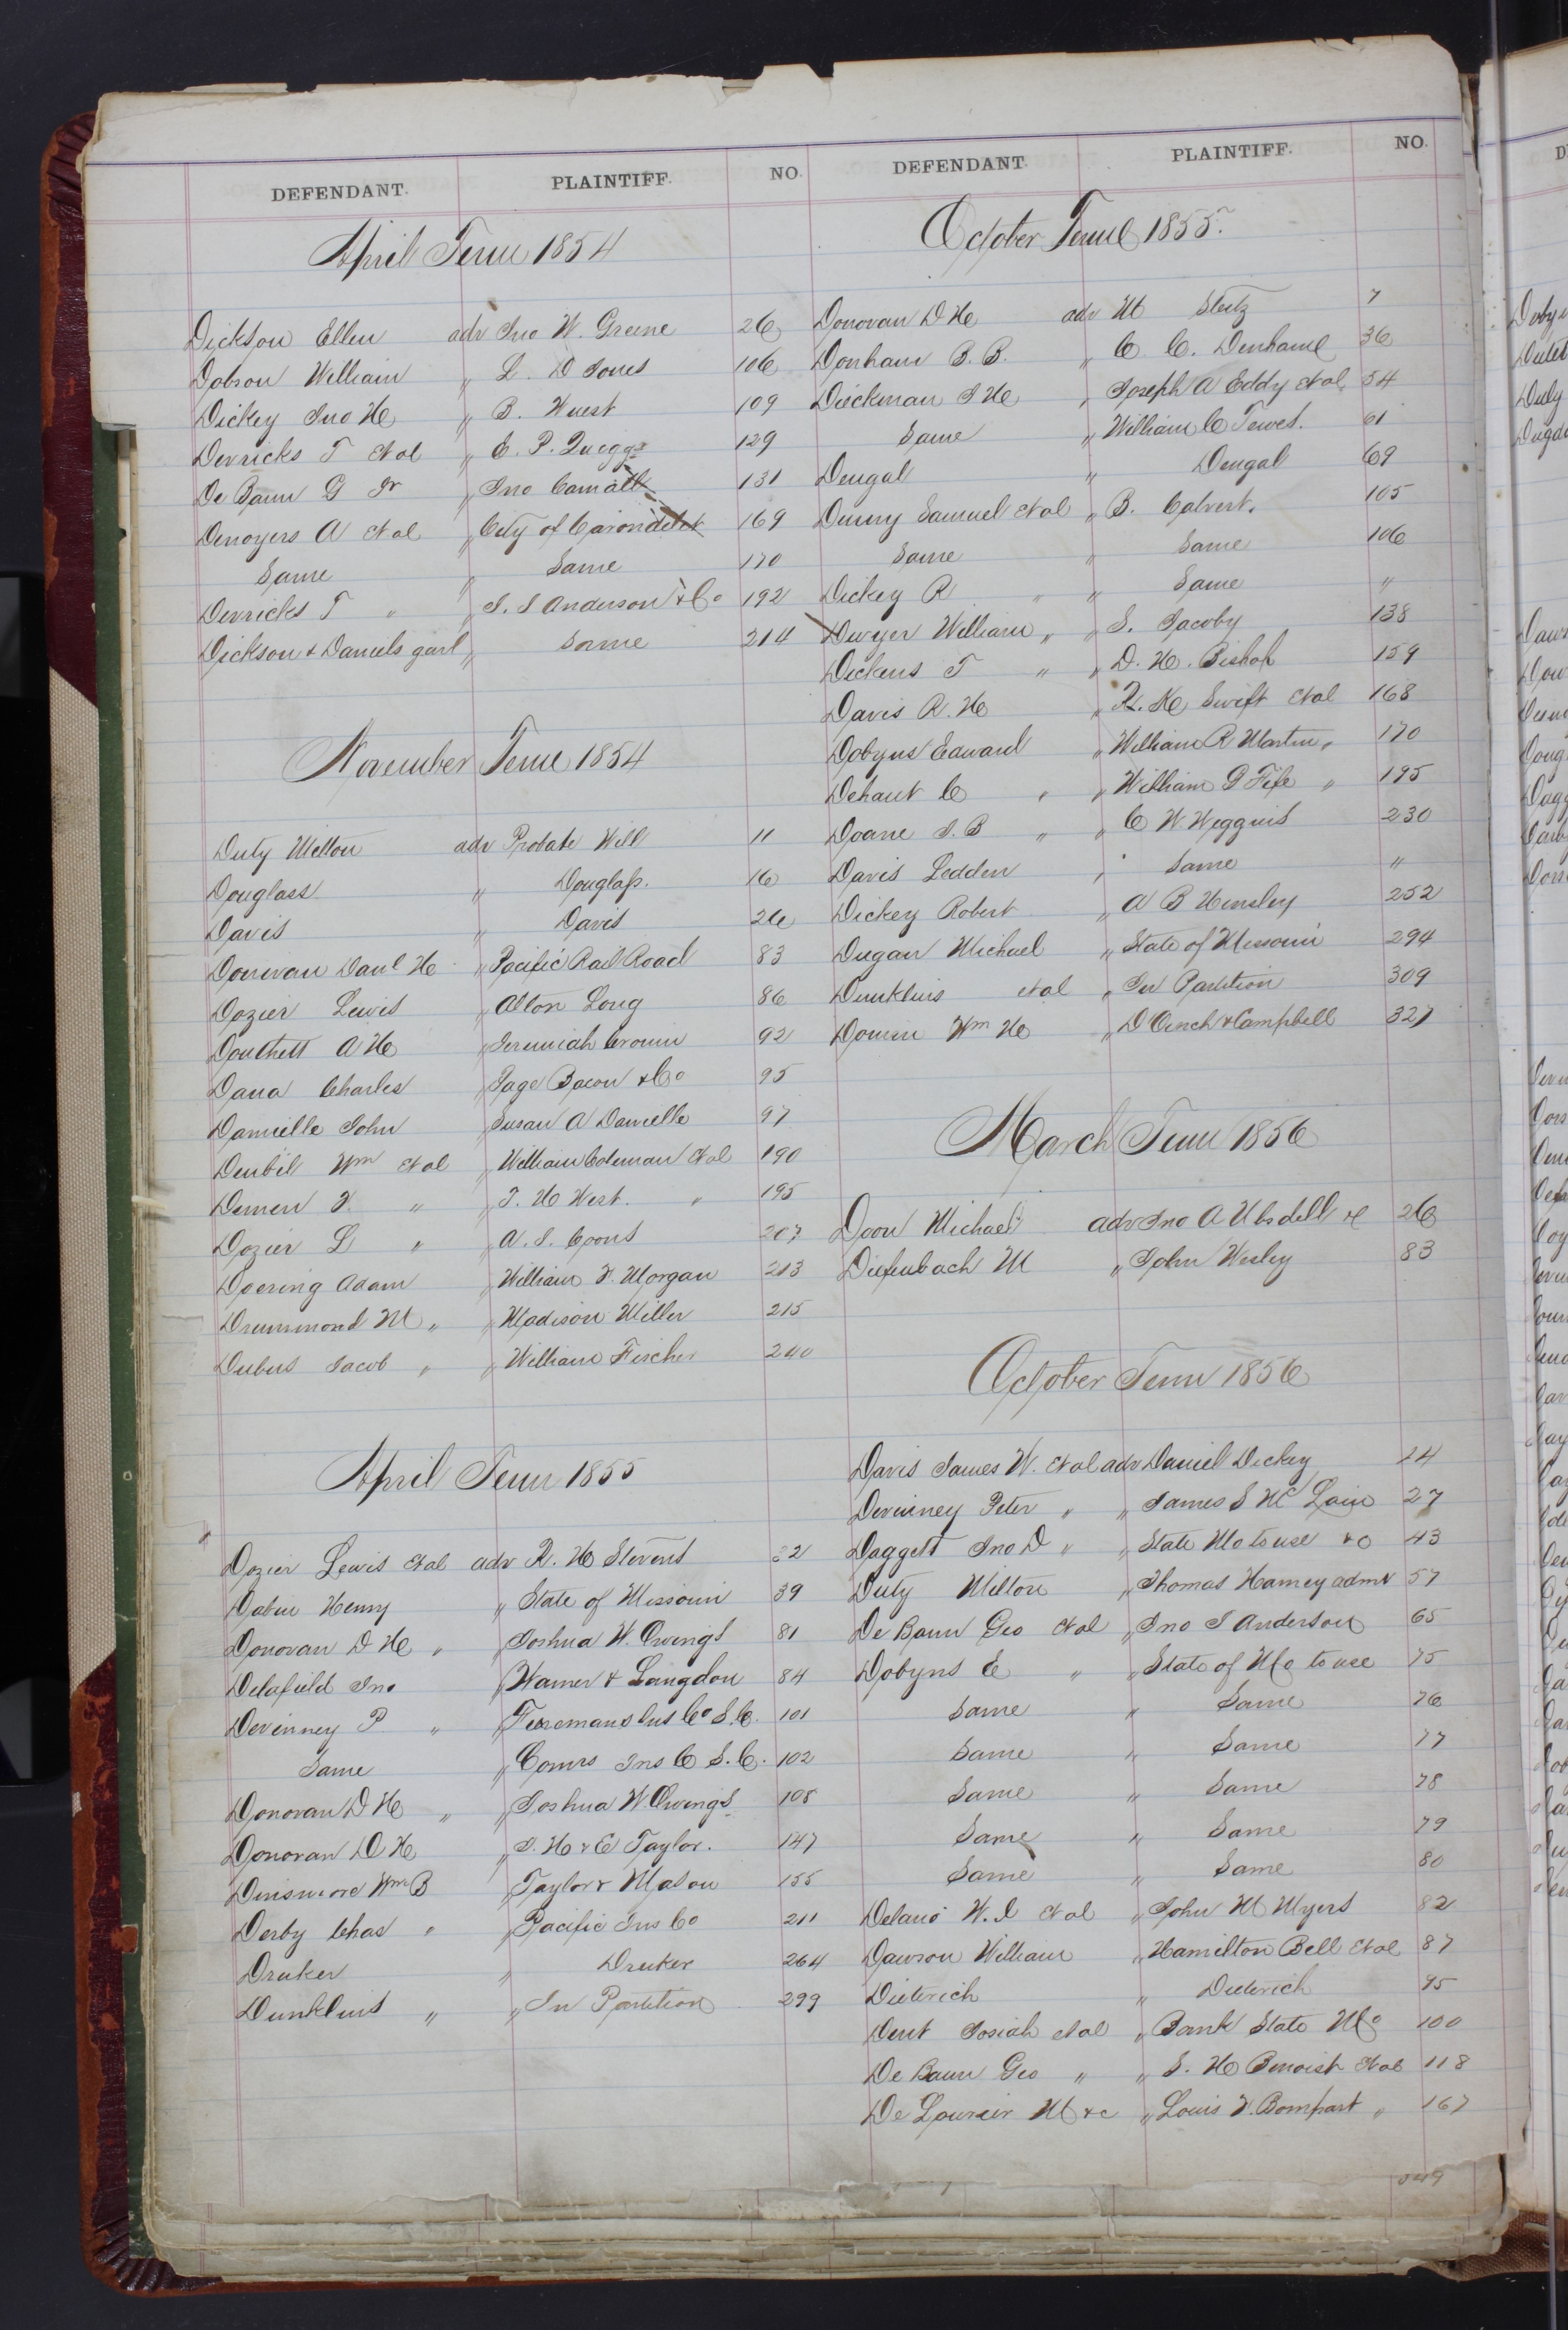 DEFENDANT. PLAINTIFF. NO.
April Term 1854
Dickson Ellen adv Jno W. Greene 26
Dobson William " L. D Jones 106
Dickey Jno H " B. Wuest 109
Derricks T et al " E. P. Queggs 129
De Baun G Jr " Jno Camath 131
Denoyers A et al " City of Carondelet 169
Same " Same 170
Derricks T " " J. J Anderson & Co 192
Dickson & Daniels garl " Same 214
November Term 1854
Duty Milton adv Probate Will 11
Douglass " Douglass. 16
Davis " Davis 26
Donivan Danl H " Pacific Rail Road 83
Dozier Lewis " Alton Long 86
Douthett A H " Jeremiah Cronin 92
Dana Charles " Page Bacon & Co 95
Damielle John " Susan A Damielle 97
Deubil Wm et al " William Coleman et al 190
Demen F. " " T. H West. " 195
Dozier L " " A. J. Coons 207
Doering Adam " William F. Morgan 213
Drummond M " " Madison Miller 215
Dubus Jacob " " William Fischer 240
April Term 1855
Dozier Lewis et al adv R. H Stevens 32
Dahn Henry " State of Missouri 39
Donovan D H " " Joshua W. Owings 81
Delafield Jno " Warner & Langdon 84
Devinney P " " Firemans Ins Co S. C. 101
Same " Comrs Ins C S. C. 102
Donovan D H " " Joshua W Owings 108
Donovan D H " J. H & E Taylor. 147
Dinsmore Wm B " Taylor & Mason 155
Derby Chas " " Pacific Ins Co 211
Druker " Druker 264
Dunklins " " In Partition 299
DEFENDANT. PLAINTIFF. NO.
October Term 1855.
Donovan D H adv M Steitz 7
Donham B. B. " C. C. Denhame 36
Dieckman J H " Joseph A Eddy et al 54
Same " William C Tewes. 61
Dengal " Dengal 69
Denny Samuel et al " B. Calvert. 105
Same " Same 106
Dickey R " " Same "
Dwyer William " " S. Jacoby 138
Dickens T " " D. H. Bishop 159
Davis R. H " R. K Swift et al 168
Dobyns Edward " William R Martin " 170
Dehaut C " " William D Fife " 195
Doane J. B " " C W Weggnis 230
Davis Ledden " Same "
Dickey Robert " A B Hensley 252
Dugan Michael " State of Missouri 294
Dunklins et al " In Partition 309
Downin Wm H " D Oench & Campbell 327
March Term 1856
Doon Michael adv Jno A Ubsdell &c 26
Diefenbach M " John Wesley 83
October Term 1856
Davis James W. et al adv Daniel Dickey 14
Devinney Peter " " James S McLain 27
Daggett Jno D " " State Mo to use &c 43
Duty Milton " Thomas Harney admr 57
De Baun Geo et al " Jno J Anderson 65
Dobyns E " " State of Mo to use 75
Same " Same 76
Same " Same 77
Same " Same 78
Same " Same 79
Same " Same 80
Delano W. J et al " John M Myers 82
Dawson William " Hamilton Bell et al 87
Dieterich " Dieterich 95
Dent Josiah et al " Bank State Mo 100
De Baun Geo " " L. H Benoist et al 118
De Lourier M &c " Louis V. Bompart " 167